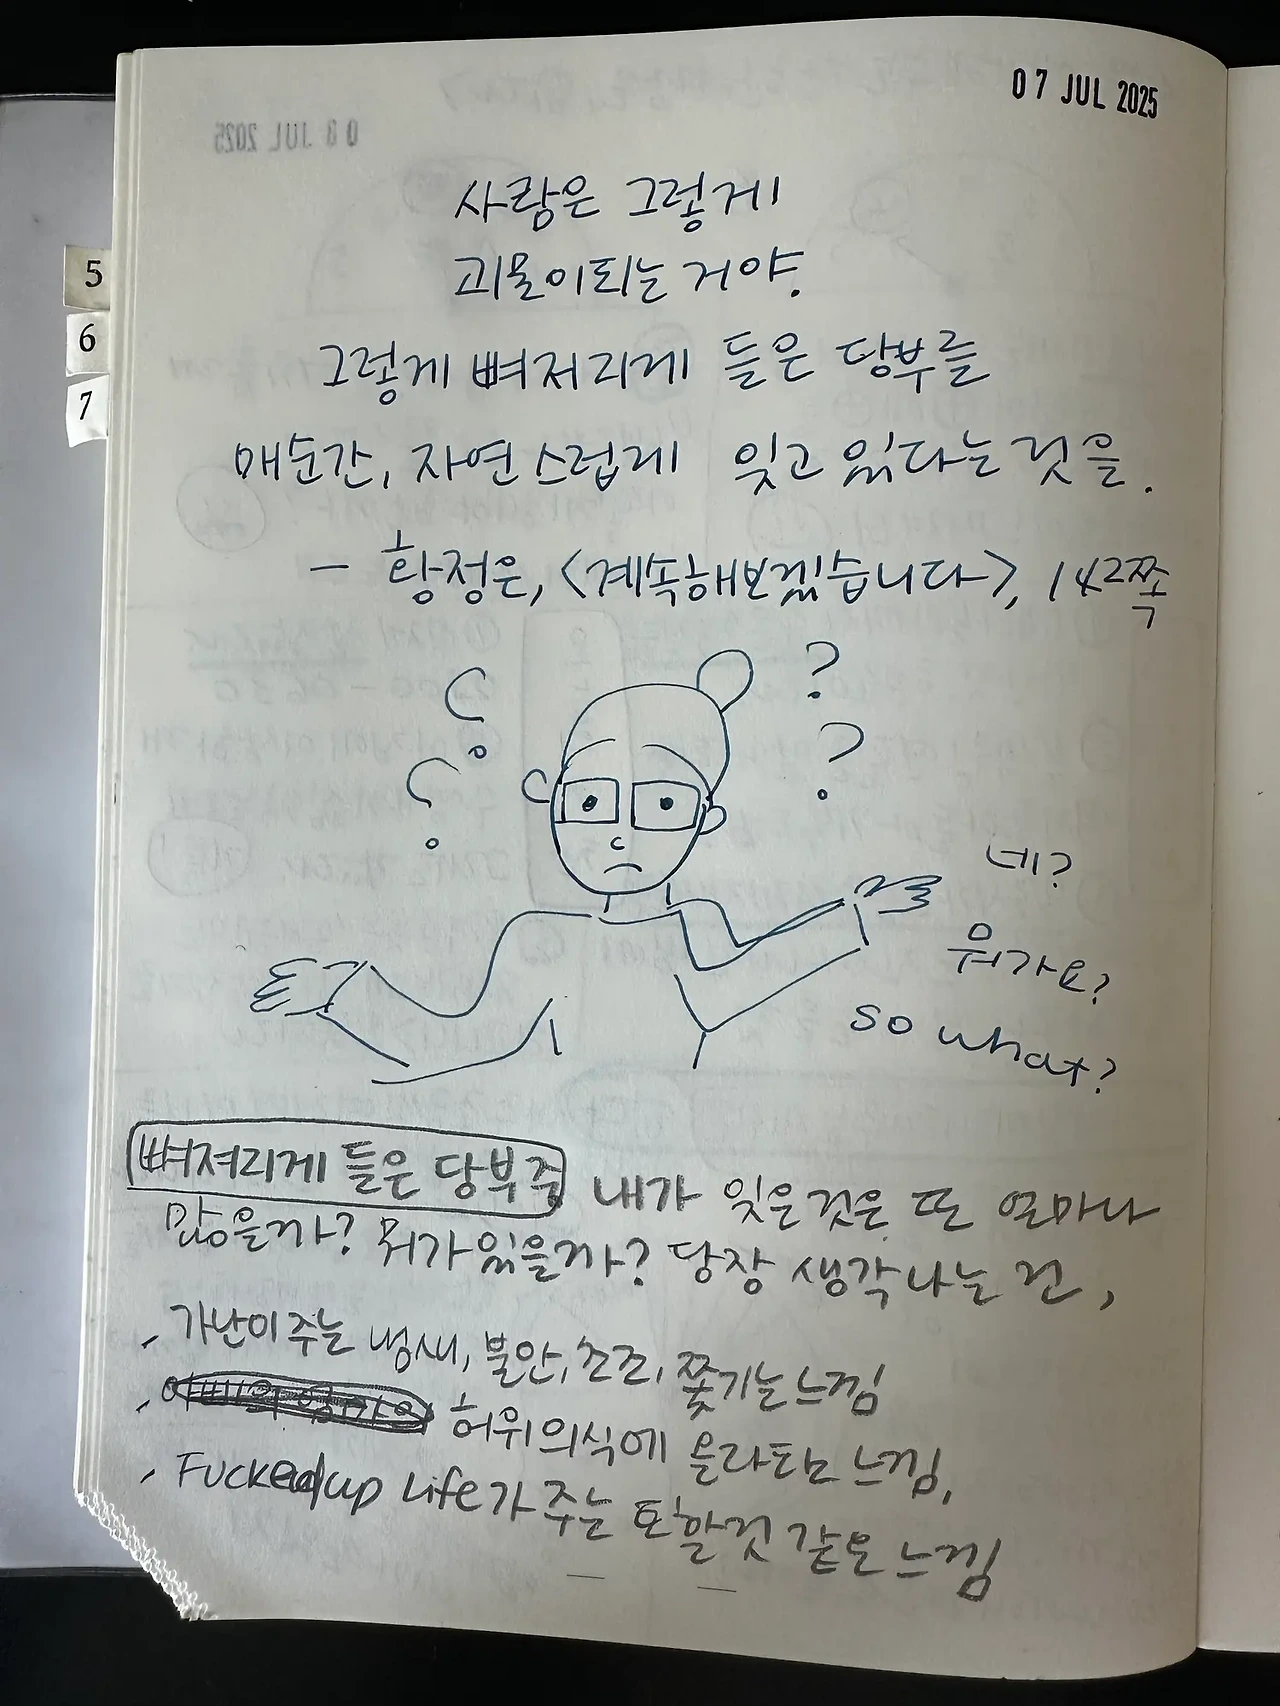 07 JUL 2025
사람은 그렇게
괴물이되는 거야.
그렇게 뼈저리게 들은 당부를
매순간, 자연스럽게 잊고 있다는 것을.
- 황정은, <계속해보겠습니다>, 142쪽
? ?
? ?
네?
뭐가요?
so what?
뼈저리게 들은 당부중 내가 잊은것은 또 얼마나
많을까? 뭐가있을까? 당장 생각나는 건,
, 가난이 주는 냄새, 불안, 초조, 쫓기는느낌
, 허위의식에 올라탄 느낌,
, Fucked up Life가 주는 토할것 같은 느낌
5
6
7